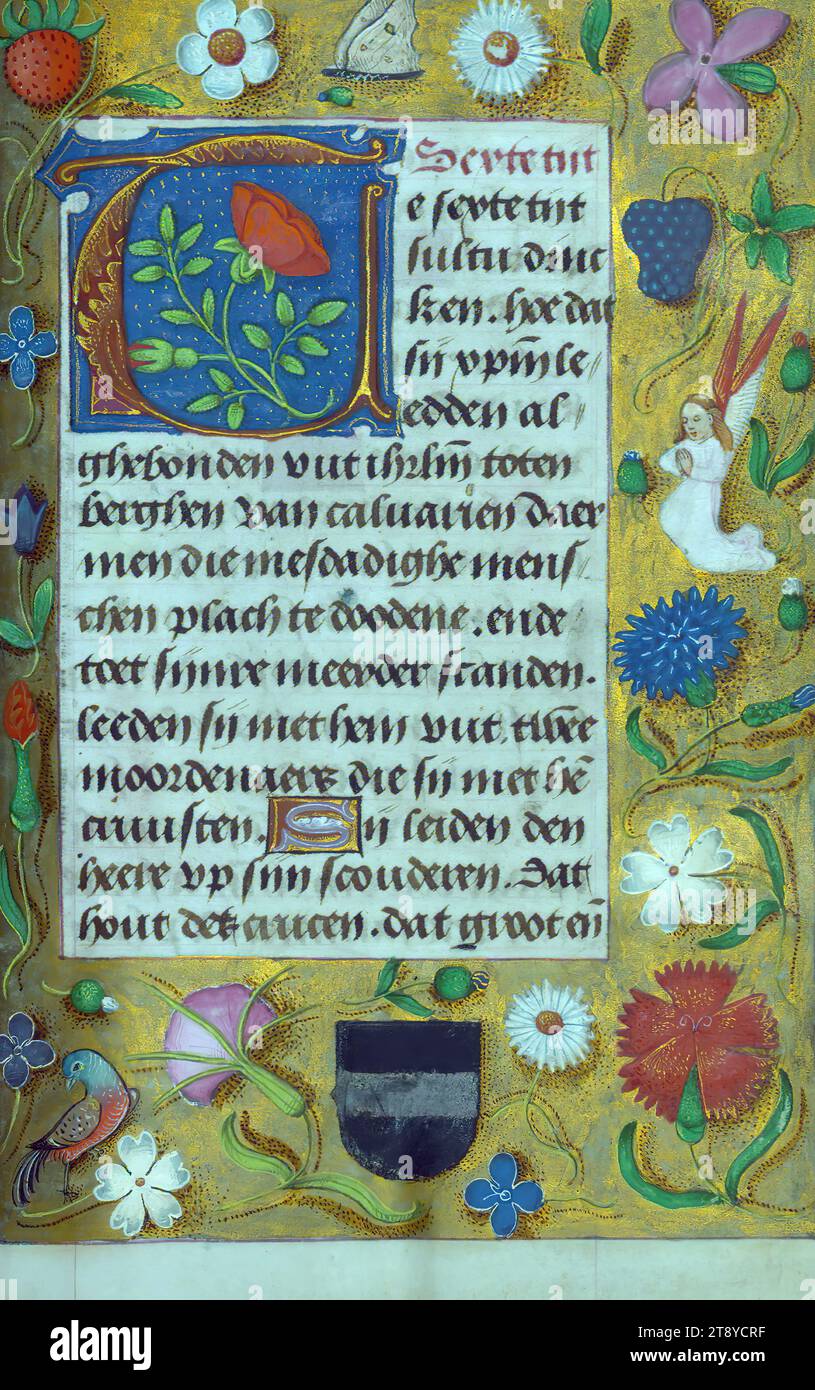 Sexte tijt
Te sexte tijt
sultu dinc
ken. hoe dat
sij le
edden al
ghebonden vut ihrlm̄ toten
berghen van caluarien daer
men die mesdadighe mens
chen plach te doodene. ende
toet sijnre meerder scanden.
leeden sij met hem vut. twee
moordenaers die sij met hē
cruusten. Sij leiden den
heere vp sijn scouderen. Dat
hout des crucen. dat groot en̄
alamy
a
alamy
Image ID: 2T8YCRF
www.alamy.com